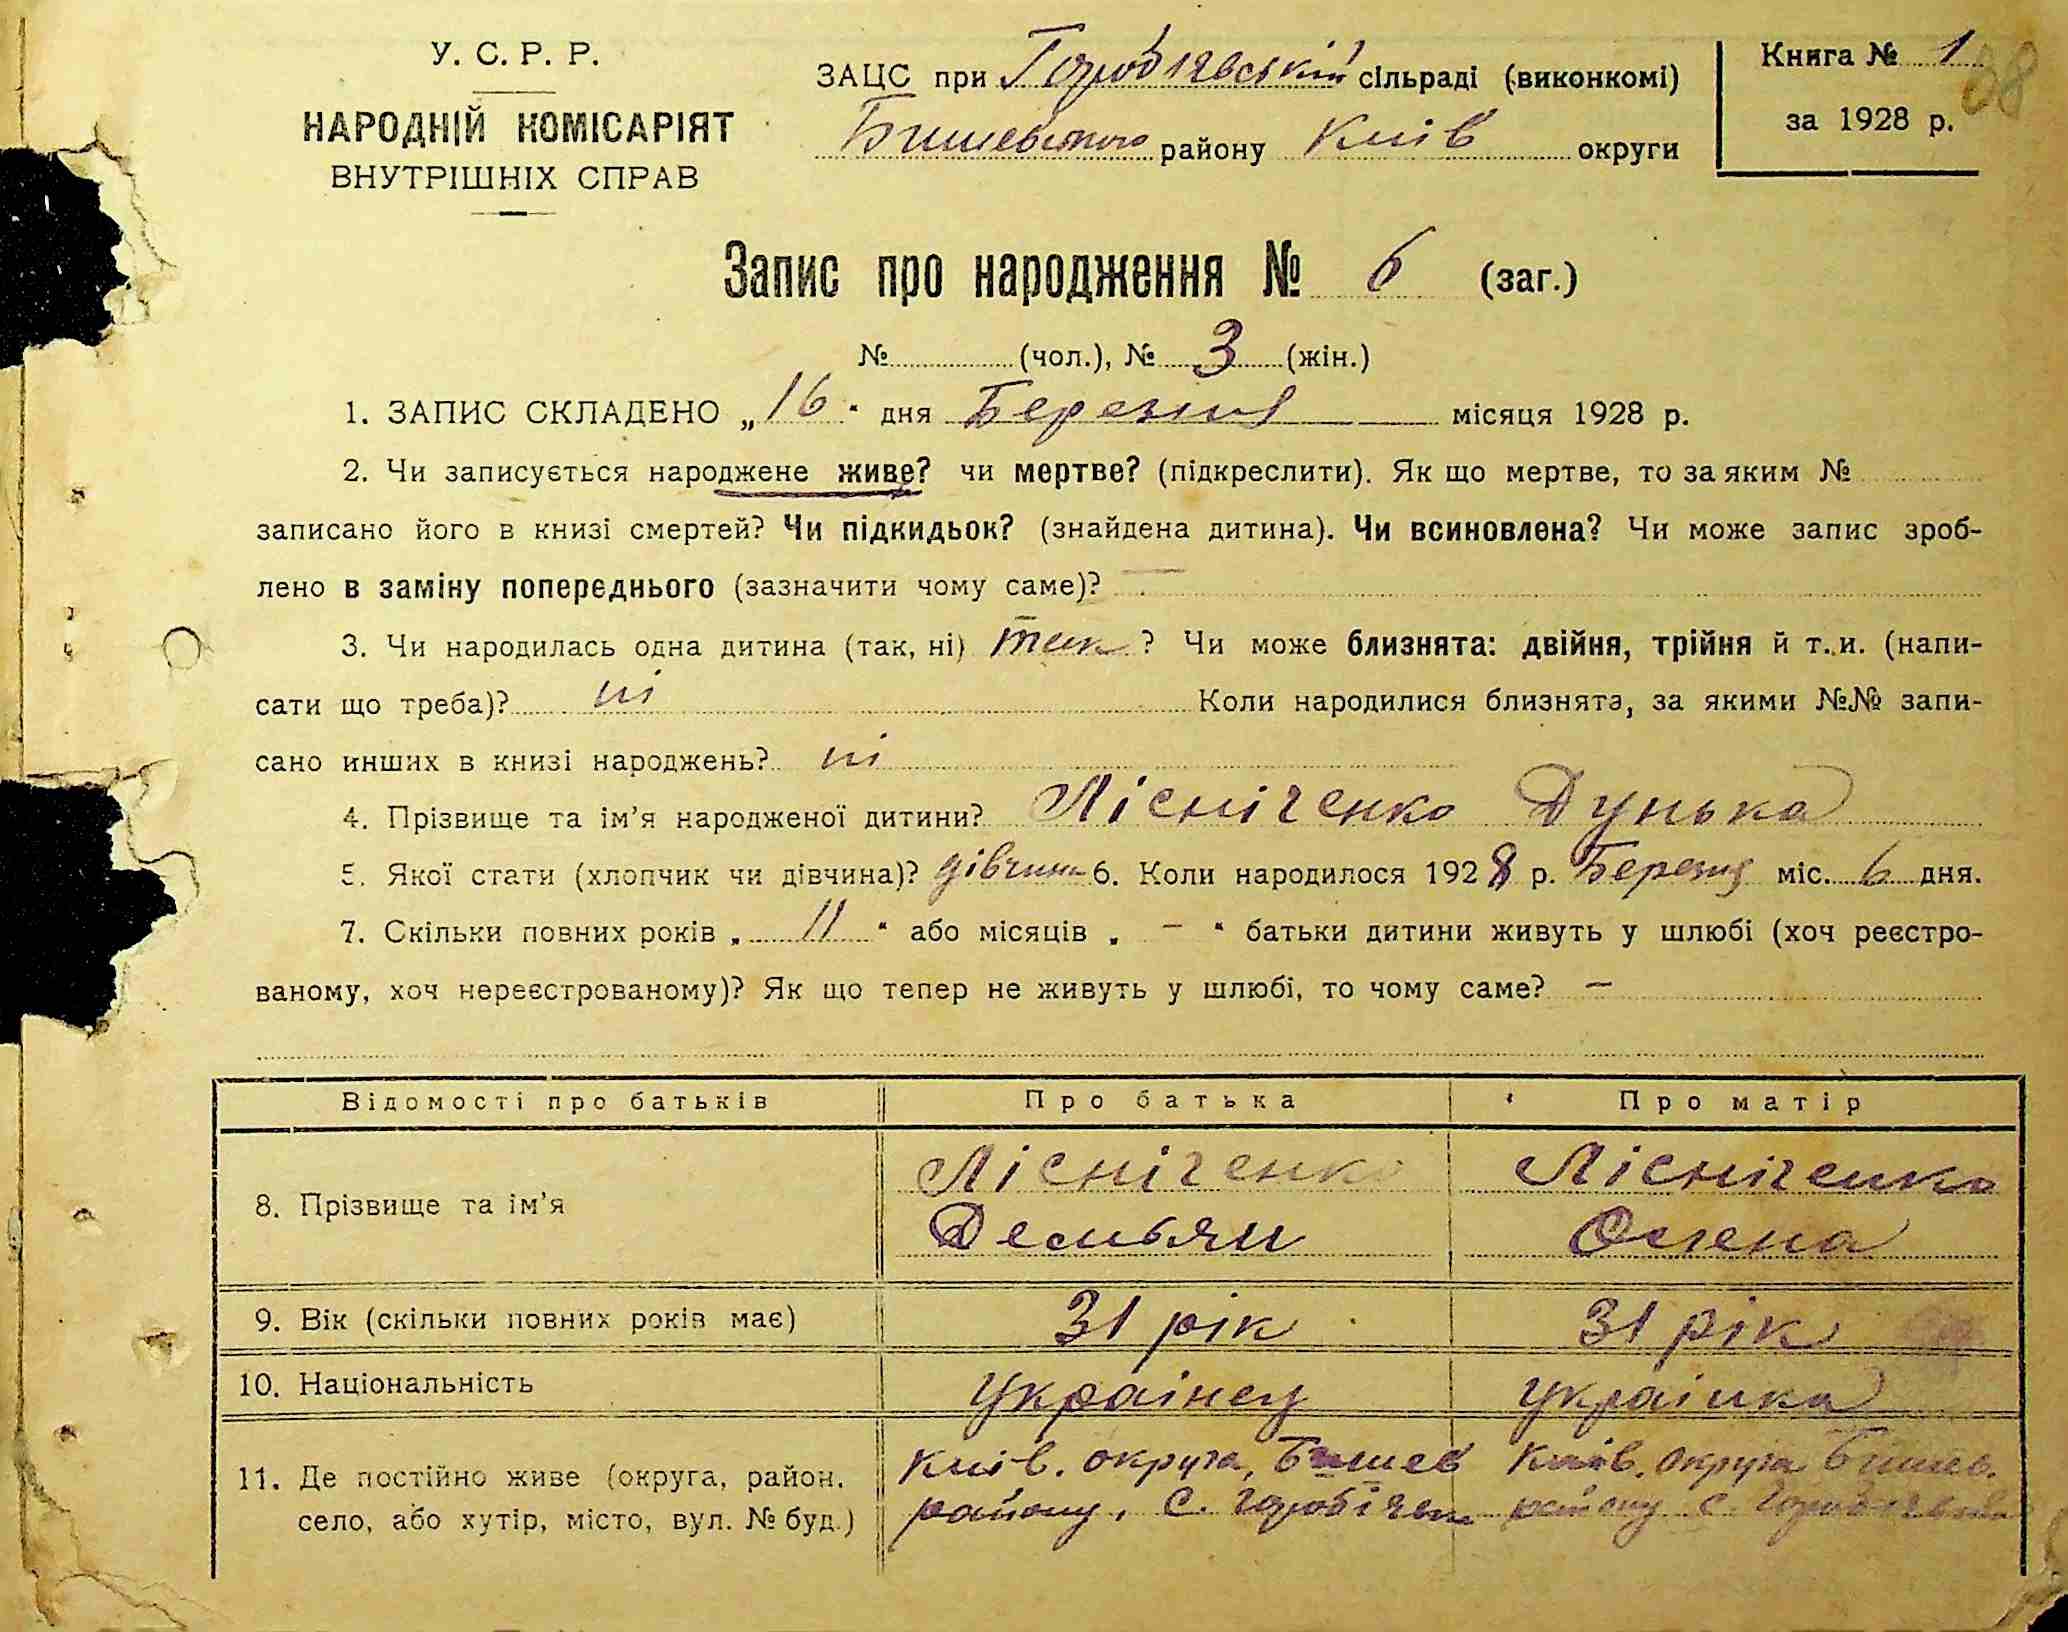 У. С. Р. Р.
НАРОДНІЙ КОМІСАРІЯТ
ВНУТРІШНІХ СПРАВ
ЗАЦС при Горобіївській сільраді (виконкомі)
Бишевського району Київ округи
Книга № 1
за 1928 р.
Запис про народження № 6 (заг.)
№ (чол.), № 3 (жін.)
1. ЗАПИС СКЛАДЕНО „16" дня Березня місяця 1928 р.
2. Чи записується народжене живе? чи мертве? (підкреслити). Як що мертве, то за яким №
записано його в книзі смертей? Чи підкидьок? (знайдена дитина). Чи всиновлена? Чи може запис зроб-
лено в заміну попереднього (зазначити чому саме)? —
3. Чи народилась одна дитина (так, ні) так ? Чи може близнята: двійня, трійня й т. и. (напи-
сати що треба)? ні Коли народилися близнята, за якими №№ запи-
сано инших в книзі народжень? ні
4. Прізвище та ім'я народженої дитини? Лісніченко Дунька
5. Якої стати (хлопчик чи дівчина)? дівчина 6. Коли народилося 1928 р. Березня міс. 6 дня.
7. Скільки повних років „ 11 " або місяців „ – " батьки дитини живуть у шлюбі (хоч реєстро-
ваному, хоч нереєстрованому)? Як що тепер не живуть у шлюбі, то чому саме? —
Відомості про батьків Про батька Про матір
8. Прізвище та ім'я Лісніченко Лісніченко
Демьян Олена
9. Вік (скільки повних років має) 31 рік 31 рік
10. Національність Українец українка
11. Де постійно живе (округа, район, Київ. округа, Бишев Київ. округа Бишев.
село, або хутір, місто, вул. № буд.) району, с. району с.